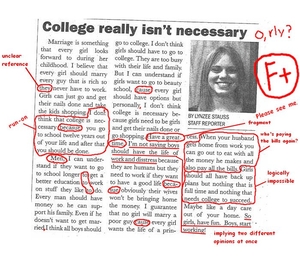 College really isn't necessary
O, rly?
F+
Please see me.
unclear
reference
run-on
Marriage is something
that every girl looks
forward to during her
childhood. I believe that
every girl should marry
every guy that is rich so
they never have to work.
Girls can just go and get
their nails done and take
the kids shopping. I don't
think that college is nec-
cessary because you go
to school twelve years out
of your life and after that
you should be done.
I can under-
stand if they want to go
to school to get a
better education
on stuff they like to do.
Every man should have
money so he can sup-
his family. Even if he
doesn't want to get mar-
ried, I think all boys should
go to college. I don't think
girls should have to go to
college. They are too busy
with their life and family.
But I can understand if
girls want to go to beauty
school, cause every girl
should have options but
personally, I don't think
college is necessary be-
cause girls need to be girls
and get their nails done or
go shopping. Have a great
time. I'm not saying boys
should have the life of
work and distress because
they are humans but they
need to work if they want
to have a good life becau-
se obviously their wives
won't be bringing home
the money. I guarantee
that no girl will marry a
poor guy cause every girl
wants the life of a prin-
BY LYNZEE STAUSS
STAFF REPORTER
fragment
cess. When your husband
gets home from work you
can go out to eat with all
the money he makes and
also pay all the bills. Girls
should all have back up
plans but nothing that is
full time and nothing that
needs college to succeed.
Maybe like a day care
out of your home. So
girls, have fun. Boys, start
working!
who's paying
the bills again?
logically
impossible
implying two different
opinions at once